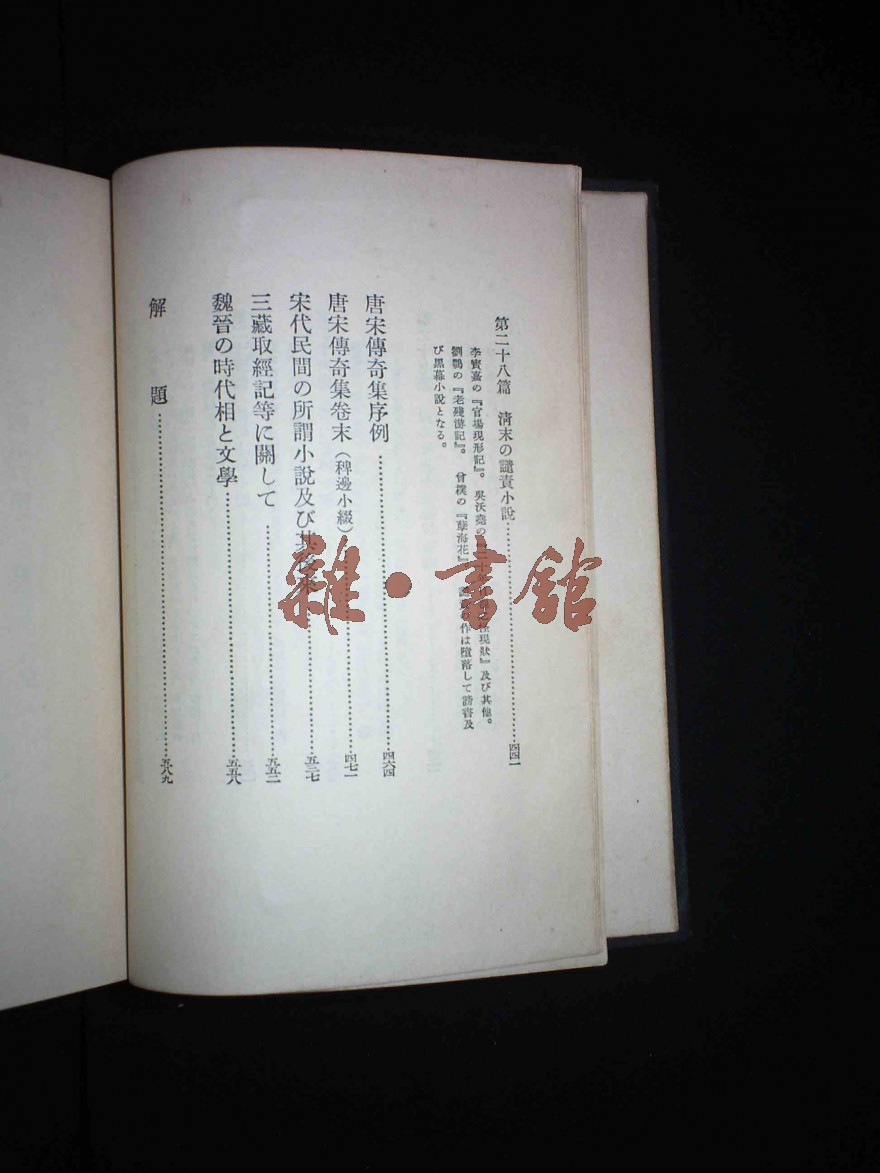 第二十八篇 清末の譴責小說……四四一
李寶嘉の『官場現形記』。吳沃堯の『二十年 現狀』及び其他。
劉鶚の『老殘游記』。曾樸の『孽海花』。 作は墮落して謗書及
び黑幕小說となる。
唐宋傳奇集序例……四六四
唐宋傳奇集卷末（稗邊小綴）……四七一
宋代民間の所謂小說及び其……五三七
三藏取經記等に關して……五五二
魏晉の時代相と文學……五五八
解題……五八九
雜·書館